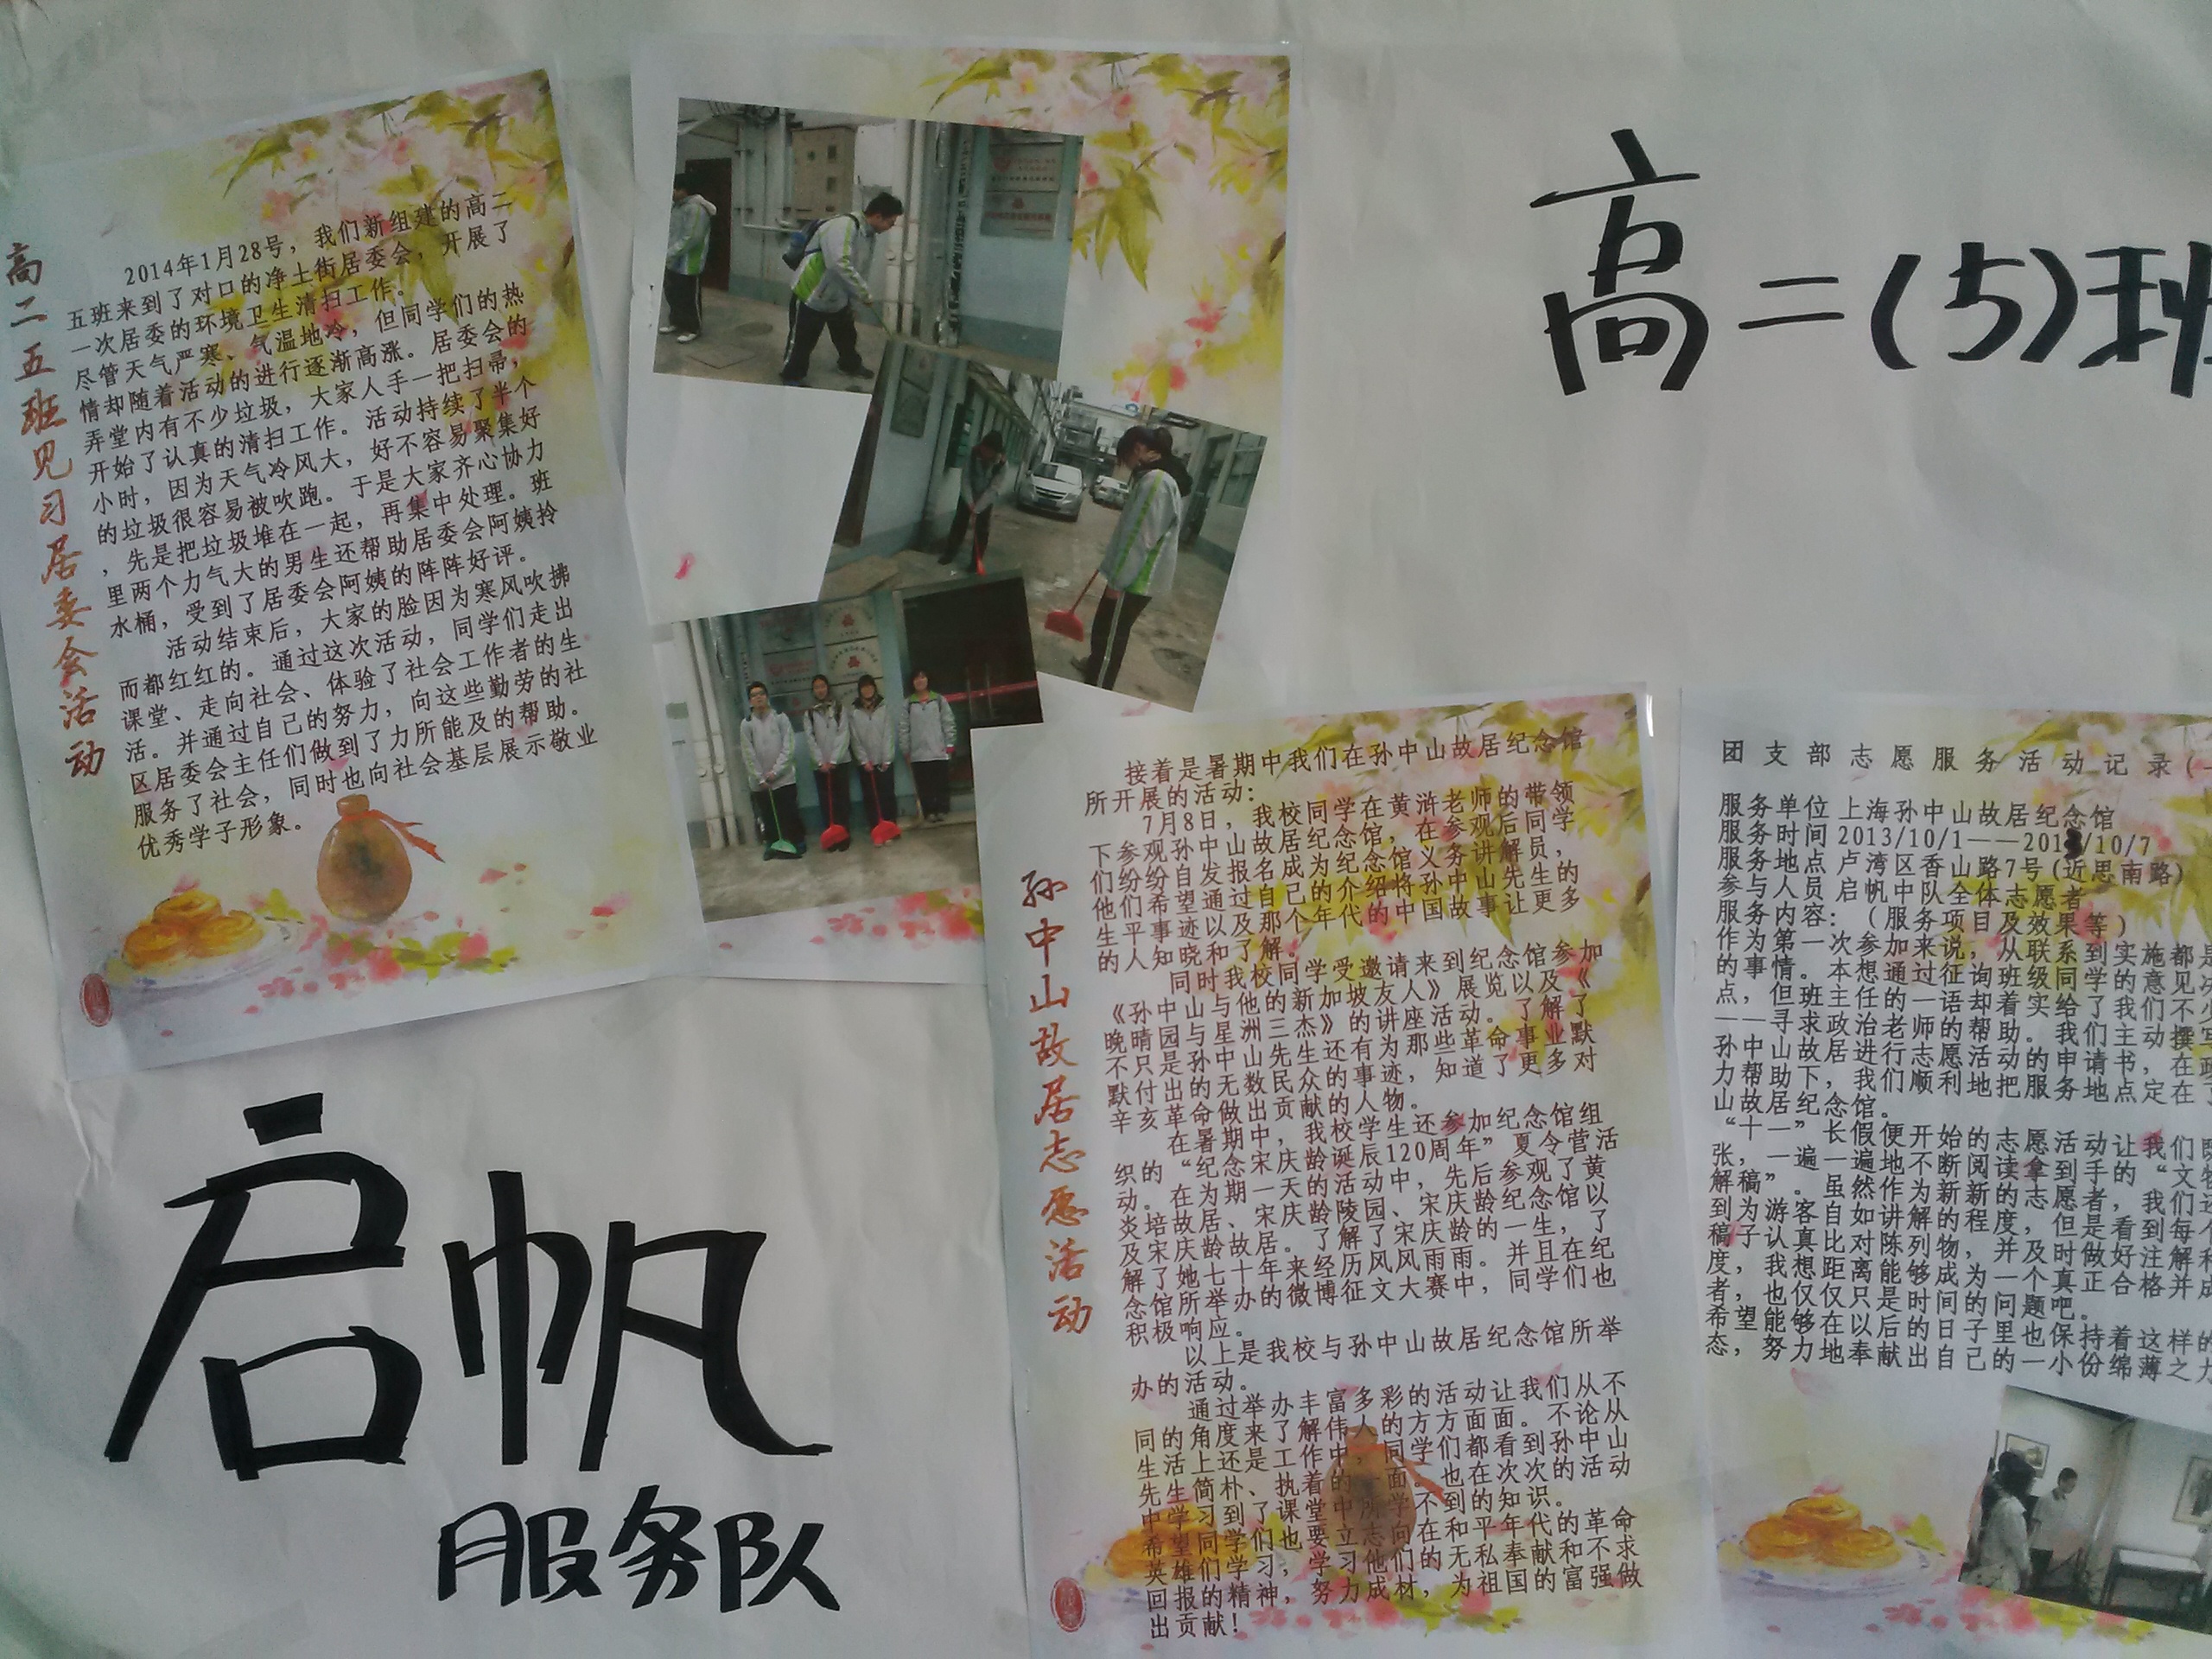 高二(5)班
高二五班见习居委会活动
2014年1月28号，我们新组建的高二
五班来到了对口的净土街居委会，开展了
一次居委的环境卫生清扫工作。
尽管天气严寒、气温地冷，但同学们的热
情却随着活动的进行逐渐高涨。居委会的
弄堂内有不少垃圾，大家人手一把扫帚，
开始了认真的清扫工作。活动持续了半个
小时，因为天气冷风大，好不容易聚集好
的垃圾很容易被吹跑。于是大家齐心协力
，先是把垃圾堆在一起，再集中处理。班
里两个力气大的男生还帮助居委会阿姨拎
水桶，受到了居委会阿姨的阵阵好评。
活动结束后，大家的脸因为寒风吹拂
而都红红的。通过这次活动，同学们走出
课堂、走向社会、体验了社会工作者的生
活。并通过自己的努力，向这些勤劳的社
区居委会主任们做到了力所能及的帮助。
服务了社会，同时也向社会基层展示敬业
优秀学子形象。
启帆
服务队
孙中山故居志愿活动
接着是暑期中我们在孙中山故居纪念馆
所开展的活动：
7月8日，我校同学在黄浒老师的带领
下参观孙中山故居纪念馆，在参观后同学
们纷纷自发报名成为纪念馆义务讲解员，
他们希望通过自己的介绍将孙中山先生的
生平事迹以及那个年代的中国故事让更多
的人知晓和了解。
同时我校同学受邀请来到纪念馆参加
《孙中山与他的新加坡友人》展览以及《
晚晴园与星洲三杰》的讲座活动。了解了
不只是孙中山先生还有为那些革命事业默
默付出的无数民众的事迹，知道了更多对
辛亥革命做出贡献的人物。
在暑期中，我校学生还参加纪念馆组
织的“纪念宋庆龄诞辰120周年”夏令营活
动。在为期一天的活动中，先后参观了黄
炎培故居、宋庆龄陵园、宋庆龄纪念馆以
及宋庆龄故居。了解了宋庆龄的一生，了
解了她七十年来经历风风雨雨。并且在纪
念馆所举办的微博征文大赛中，同学们也
积极响应。
以上是我校与孙中山故居纪念馆所举
办的活动。
通过举办丰富多彩的活动让我们从不
同的角度来了解伟人的方方面面。不论从
生活上还是工作中，同学们都看到孙中山
先生简朴、执着的一面。也在次次的活动
中学习到了课堂中所学不到的知识。
希望同学们也要立志向在和平年代的革命
英雄们学习，学习他们的无私奉献和不求
回报的精神，努力成材，为祖国的富强做
出贡献！
团支部志愿服务活动记录(一
服务单位 上海孙中山故居纪念馆
服务时间 2013/10/1——2013/10/7
服务地点 卢湾区香山路7号(近思南路)
参与人员 启帆中队全体志愿者
服务内容：（服务项目及效果等）
作为第一次参加来说，从联系到实施都是
的事情。本想通过征询班级同学的意见决
点，但班主任的一语却着实给了我们不少
——寻求政治老师的帮助。我们主动撰写
孙中山故居进行志愿活动的申请书，在政
力帮助下，我们顺利地把服务地点定在了
山故居纪念馆。
“十一”长假便开始的志愿活动让我们既
张，一遍一遍地不断阅读拿到手的“文物
解稿”。虽然作为新新的志愿者，我们还
到为游客自如讲解的程度，但是看到每个
稿子认真比对陈列物，并及时做好注解和
度，我想距离能够成为一个真正合格并成
者，也仅仅只是时间的问题吧。
希望能够在以后的日子里也保持着这样的
态，努力地奉献出自己的一小份绵薄之力